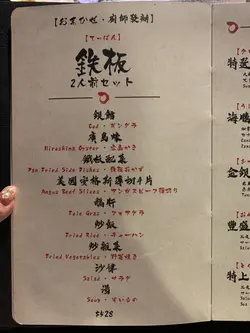 【おまかせ・廚師發辦】
【てっぱん】
鉄板
2人前セット
銀鱈
Cod・ギンダラ
廣島蠔
Hiroshima Oyster・広島かき
鐵板配菜
Pan Fried Side Dishes・鉄板おかず
美國安格斯薄切4片
Angus Beef Slices・アンガスビーフ薄切り
鵝肝
Foie Gras・フォアグラ
炒飯
Fried Rice・チャーハン
炒雜菜
Fried Vegetables・野菜焼き
沙律
Salad・サラダ
湯
$428
特
海
金銀
豐盛
特上